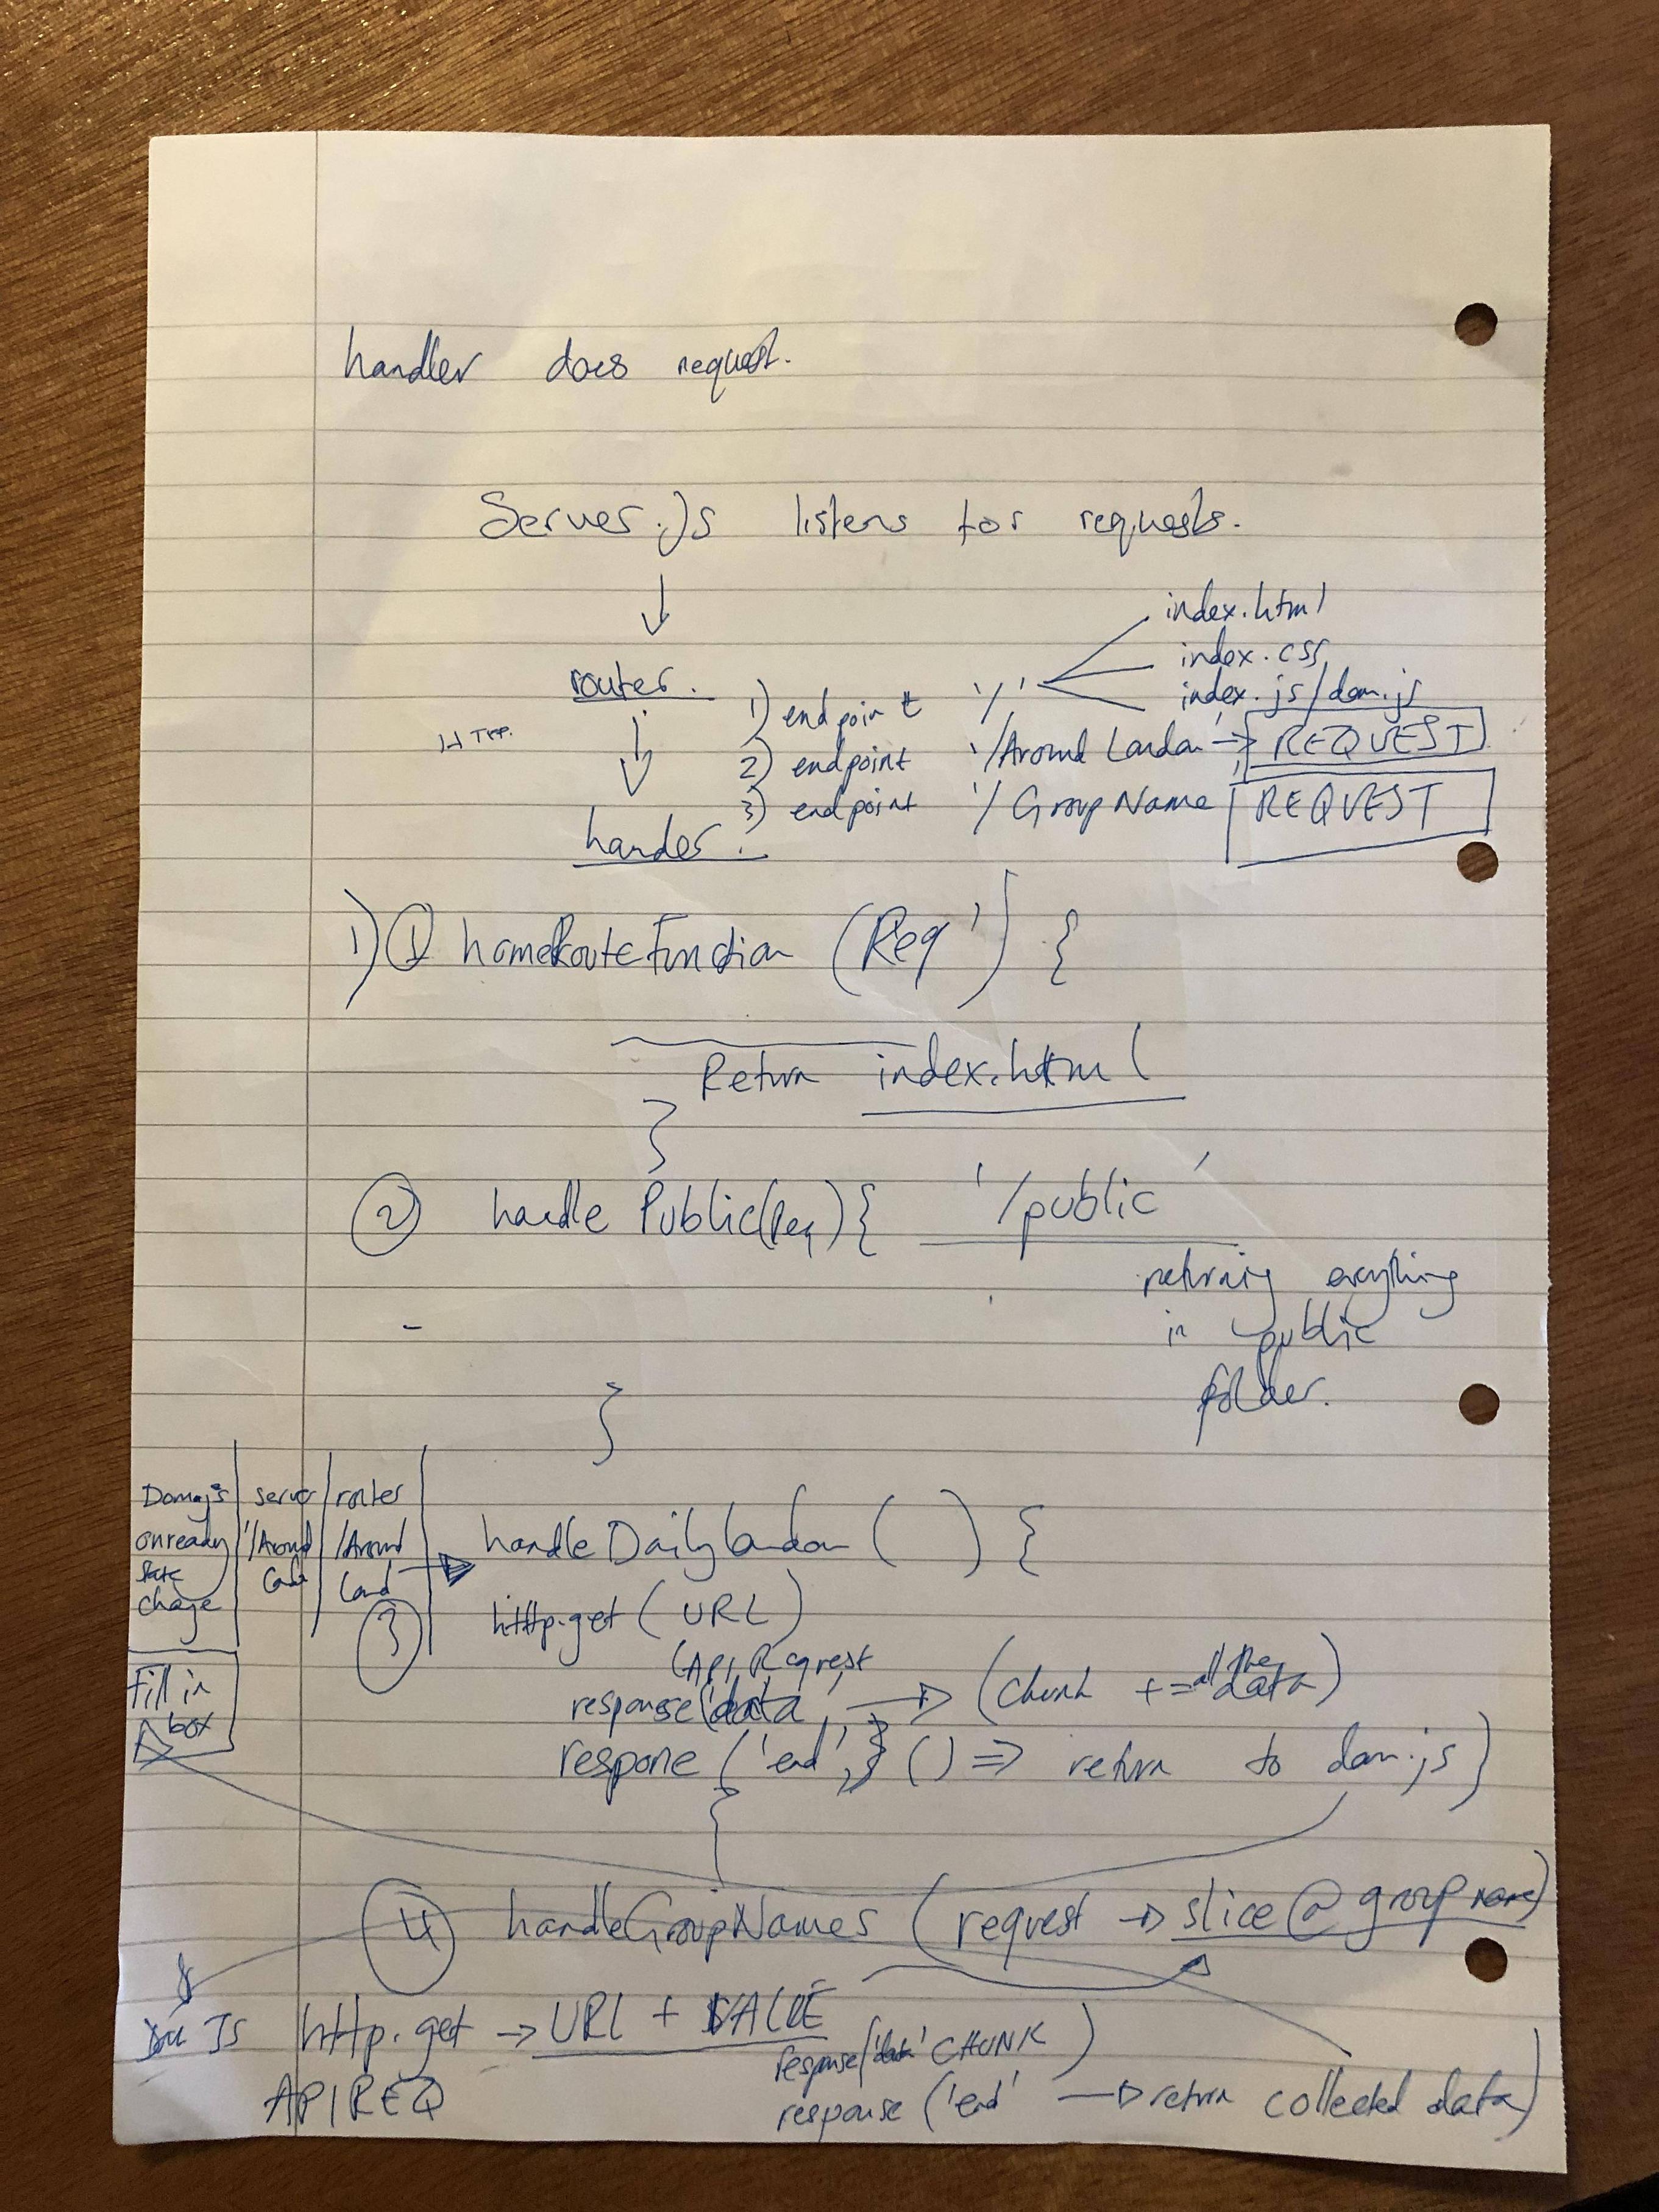 handler does request.
Server.Js listens for requests.
index.html
index.css
router.
1) endpoint '/'
index.js/dom.js
HTTP.
2) endpoint '/Around London' → REQUEST
3) endpoint '/GroupName' REQUEST
hander.
1) ① homeRouteFunction (Req') {
Return index.html
}
② handle Public(Req) { '/public'
returning everything
in public
folder.
-
}
Dom.js
onready
state
change
server
'/Around
router
/Around
Lond
③
handleDailyLondon ( ) {
http.get ( URL )
(API Request
response('data', → (chunk += all the data)
respone ('end', } () => return to dom.js )
}
Fill in
box
④ handleGroupNames (request → slice @ group name)
JS http.get → URL + VALUE
response('data' CHUNK )
API REQ
response ('end' → return collected data)